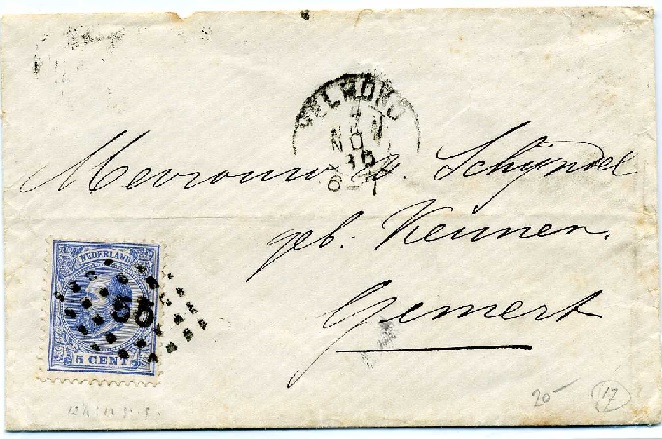 HELMOND
Mevrouw v. Schijndel
geb. Keunen.
Gemert
NEDERLAND
55
5 CENT
20-
17